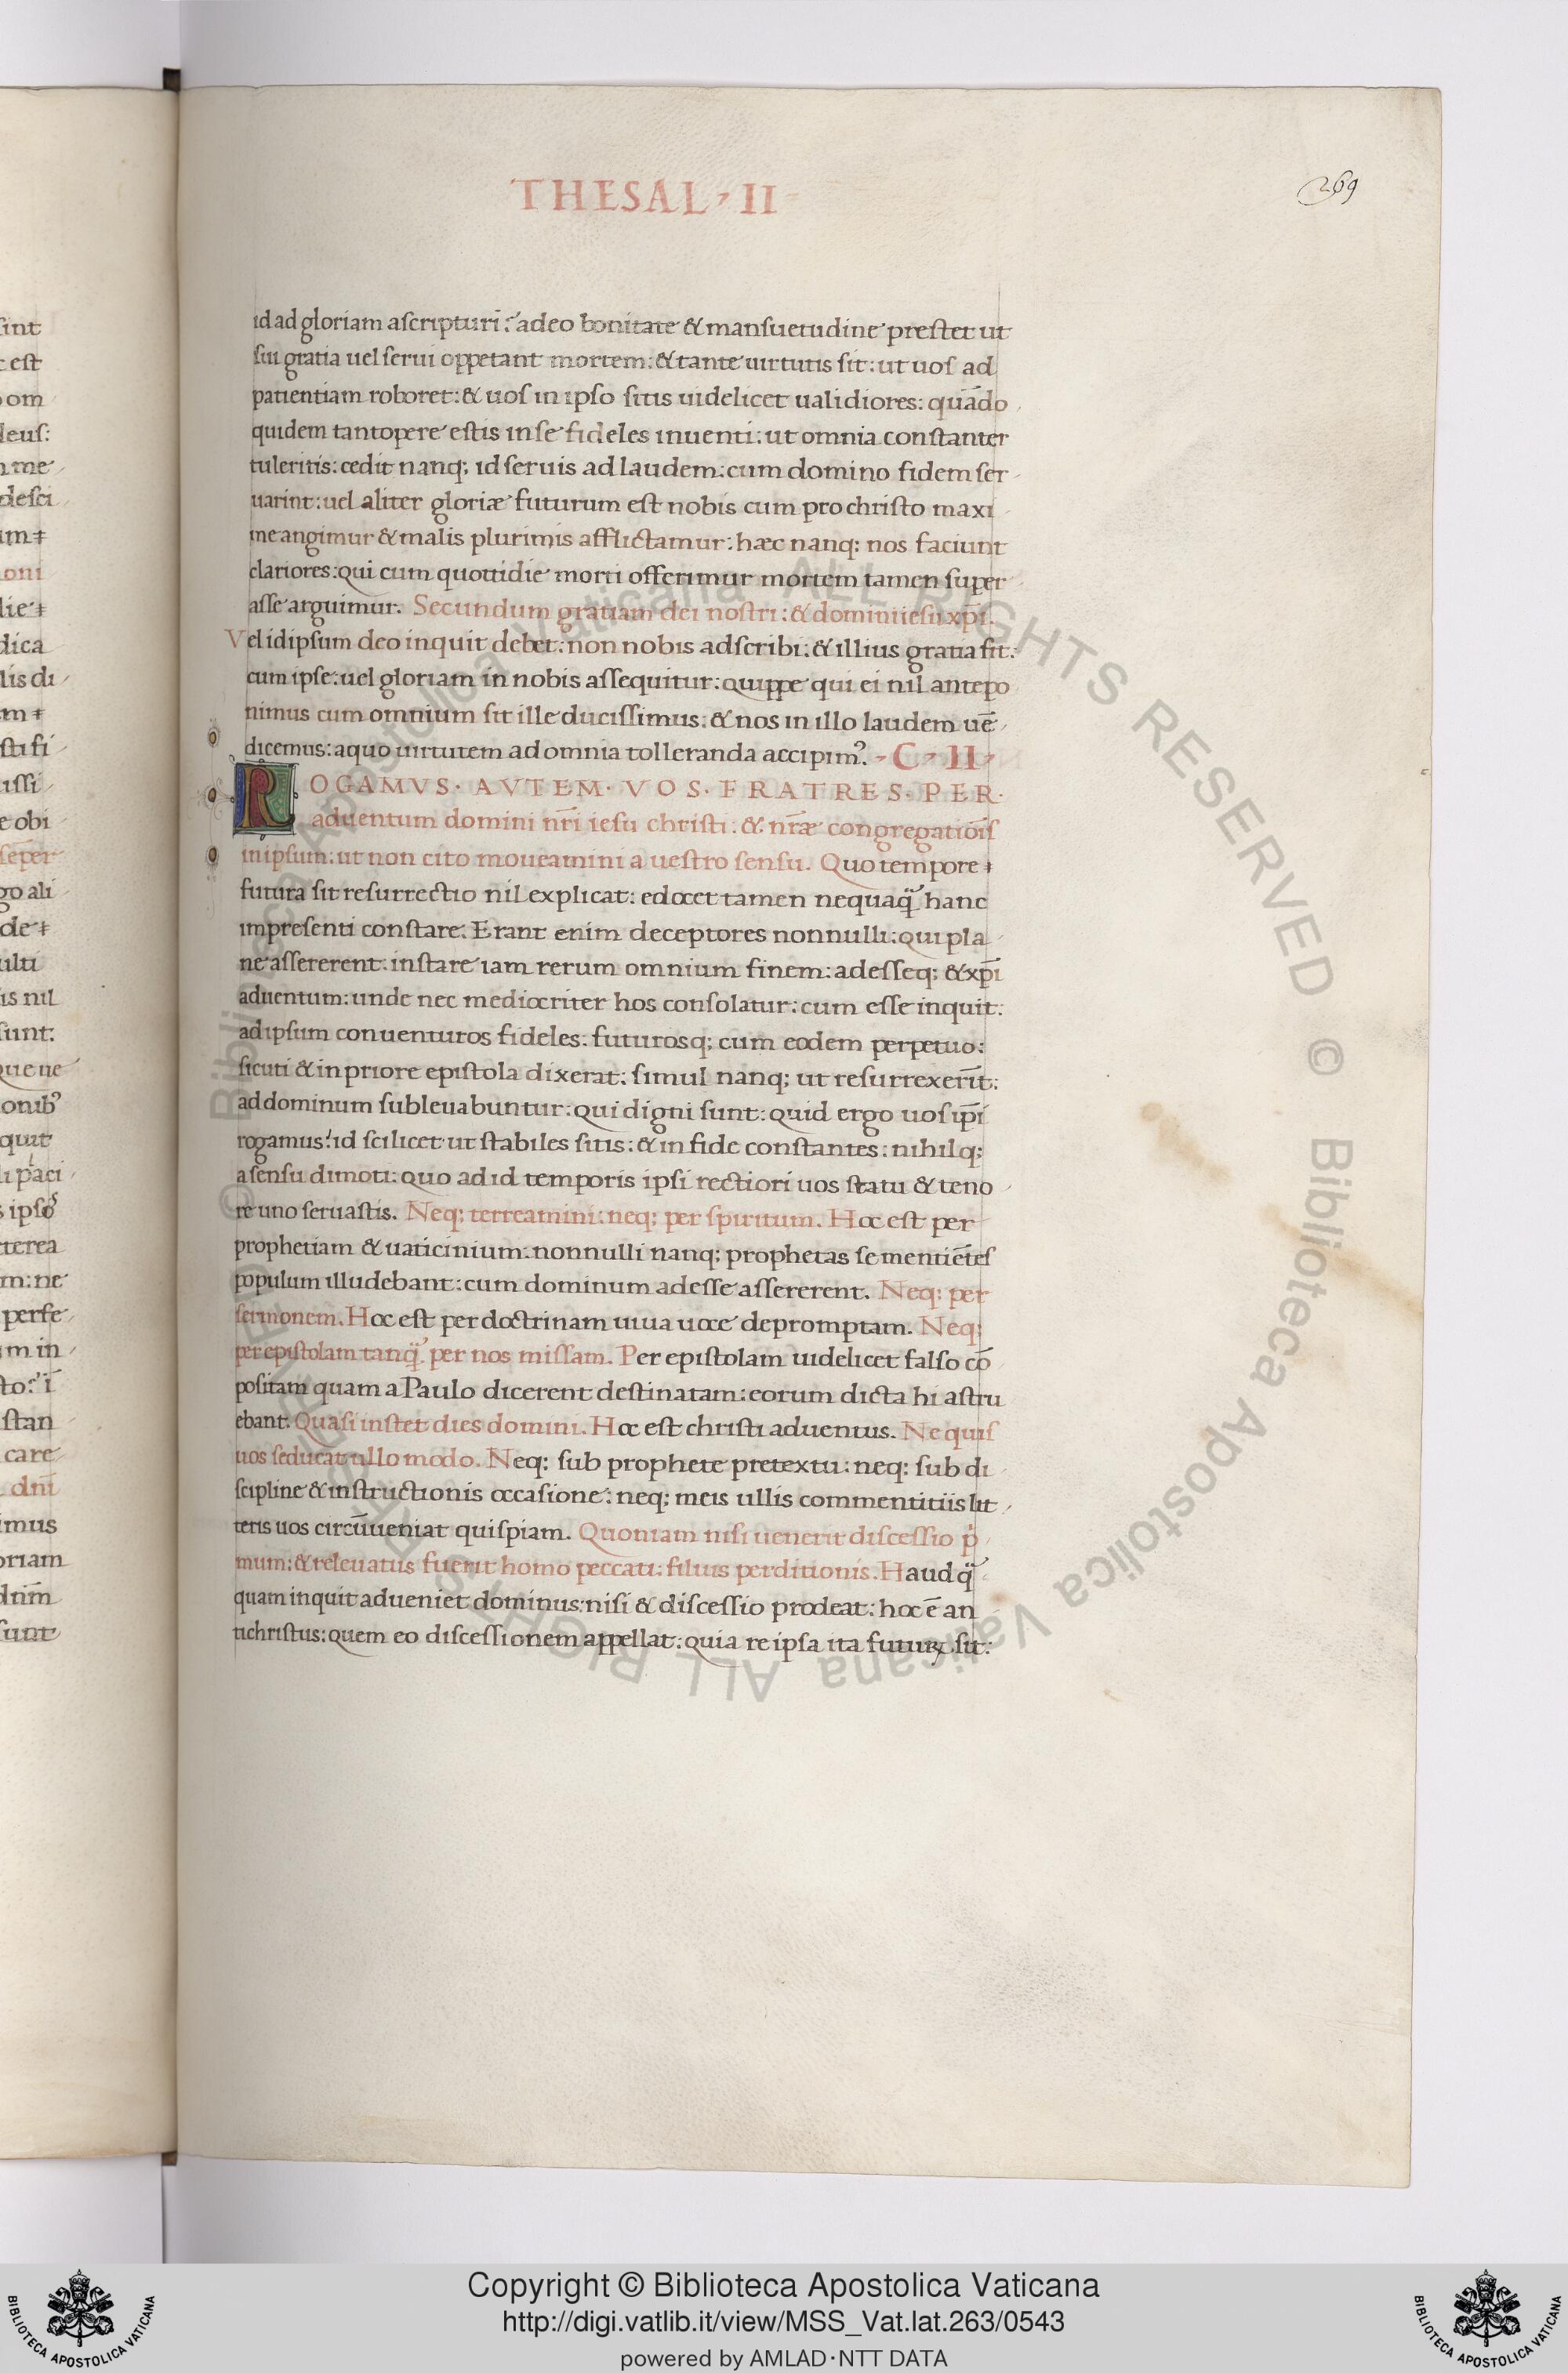 THESAL · II
269
id ad gloriam aſcripturī: adeo bonitate & manſuetudine preſtet ut
ſui gratia uel ſerui oppetant mortem: & tante uirtutis ſit: ut uoſ ad
patientiam roboret: & uoſ in ipſo ſitis uidelicet ualidiores: quādo
quidem tantopere eſtis in ſe fideles inuenti: ut omnia conſtanter
tuleritis: cedit nanq; id ſeruis ad laudem: cum domino fidem ſer
uarint: uel aliter gloriæ futurum eſt nobis cum pro chriſto maxi
me angimur & malis plurimis afflictamur: hæc nanq; nos faciunt
clariores: qui cum quottidie morti offerimur mortem tamen ſuper
aſſe arguimur. Secundum gratiam dei noſtri: & domini ieſu xp̄i.
Vel id ipſum deo inquit debet: non nobis adſcribi: & illius gratia fit:
cum ipſe: uel gloriam in nobis aſſequitur: quippe qui ei nil antepo
nimus cum omnium ſit ille duciſſimus: & nos in illo laudem uē
dicemus: a quo uirtutem ad omnia tolleranda accipim⁹. · C · II ·
ROGAMVS · AVTEM · VOS · FRATRES · PER ·
aduentum domini nr̄i ieſu chriſti: & nr̄æ congregatiōiſ
in ipſum: ut non cito moueamini a ueſtro ſenſu. Quo tempore
futura ſit reſurrectio nil explicat: edocet tamen nequaq̃ hanc
impreſenti conſtare. Erant enim deceptores nonnulli: qui pla
ne aſſererent: inſtare iam rerum omnium finem: adeſſeq; & xp̄i
aduentum: unde nec mediocriter hos conſolatur: cum eſſe inquit:
ad ipſum conuenturos fideles: futurosq; cum eodem perpetuo:
ſicuti & in priore epiſtola dixerat: ſimul nanq; ut reſurrexerīt:
ad dominum ſubleuabuntur: qui digni ſunt: quid ergo uoſ ip̄i
rogamus: id ſcilicet ut ſtabiles ſitis: & in fide conſtantes: nihilq;
a ſenſu dimoti: quo ad id temporis ipſi rectiori uos ſtatu & teno
re uno ſeruaſtis. Neq; terreamini: neq; per ſpiritum. Hoc eſt per
prophetiam & uaticinium: nonnulli nanq; prophetas ſe mentiēteſ
populum illudebant: cum dominum adeſſe aſſererent. Neq; per
ſermonem. Hoc eſt per doctrinam uiua uoce depromptam. Neq;
per epiſtolam tanq̃ per nos miſſam. Per epiſtolam uidelicet falſo cō
poſitam quam a Paulo dicerent deſtinatam: eorum dicta hi aſtru
ebant: Quaſi inſtet dies domini. Hoc eſt chriſti aduentus. Ne quiſ
uos ſeducat ullo modo. Neq; ſub prophete pretextu: neq; ſub di
ſcipline & inſtructionis occaſione: neq; meis ullis commentitiis lit
teris uos circūueniat quiſpiam. Quoniam niſi uenerit diſceſſio p̍
mum: & releuatus fuerit homo peccati: filius perditionis. Haud q̃
quam inquit adueniet dominus: niſi & diſceſſio prodeat: hoc ē an
tichriſtus: quem eo diſceſſionem appellat: quia re ipſa ita futuꝝ ſit:
Copyright © Biblioteca Apostolica Vaticana
http://digi.vatlib.it/view/MSS_Vat.lat.263/0543
powered by AMLAD·NTT DATA